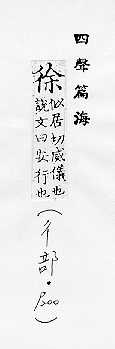 四聲篇海
徐 似居切威儀也
說文曰安行也
(彳部·P.300)